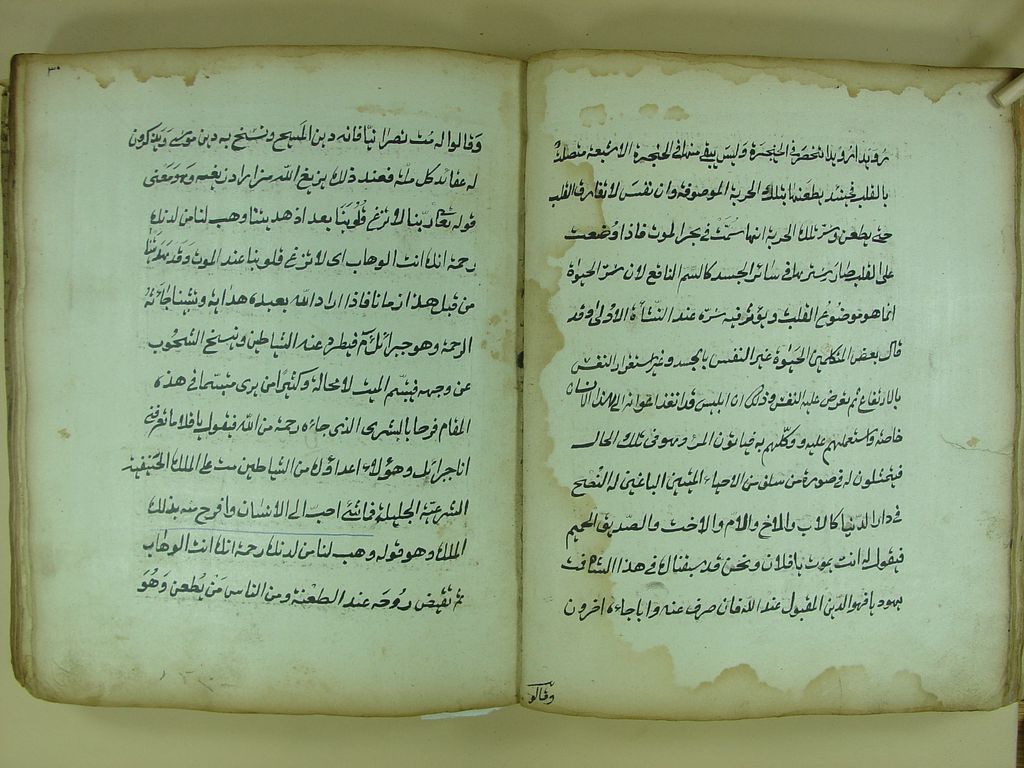 رويدا رويدا تنحصر في الحنجرة وليس يبقى منها في الحنجرة الا شعبة متصلة
بالقلب فحينئذ يطعنها بتلك الحربة الموصوفة وان نفس لا تفارق القلب
حتى يطعن وسر تلك الحربة انها سمت في بحر الموت فاذا وضعت
على القلب صار سرها في سائر الجسد كالسم الناقع لان سر الحيوة
انما هو موضوع القلب ويؤثر فيه سره عند النشأة الاولى وقد
قال بعض المتكلمين الحيوة غير النفس بالجسد استقرار النفس
بالارتفاع ثم يعرض عليه الفتن وذلك ان ابليس قد انفذ اعوانه الى هذا الانسان
خاصة واستعملهم عليه ووكلهم به فياتون المرء وهو في تلك الحال
فيتمثلون له في صورة من سلف من الاحباء الميتين الباغين له النصح
في دار الدنيا كالاب والاخ والام والاخت والصديق الحميم
فيقول له انت تموت يا فلان ونحن قد سبقناك في هذا الشأن فمت
يهوديا فهو الدين المقبول عند الله فان صرف عنه وابا جاءه اخرون
وقالو
٣٠
وقالوا له مت نصرانيا فانه دين المسيح ونسخ به دين موسى ويذكرون
له عقائد كل ملة فعند ذلك يزيغ الله من اراد زيغه وهو معنى
قوله تعالى ربنا لا تزغ قلوبنا بعد اذ هديتنا وهب لنا من لدنك
رحمة انك انت الوهاب اى لا تزغ قلوبنا عند الموت وقد هديتنا
من قبل هذا زمانا فاذا اراد الله بعبده هداية وتثبتا جاءته
الرحمة وهو جبرائل فيطرد عنه الشياطين ويمسح الشحوب
عن وجهه فيبتسم الميت لا محالة وكثيرا من يرى متبسما في هذه
المقام فرحا بالبشرى الذى جاءه رحمة من الله فيقول يا فلان ما تعرفنى
انا جبرائل وهؤلاء اعداؤك من الشياطين مت على الملة الحنيفية
الشرعية الجليلة فما شئ احب الى الانسان وافرح منه بذلك
الملك وهو قوله وهب لنا من لدنك رحمة انك انت الوهاب
ثم تقبض روحه عند الطعنة ومن الناس من يطعن وهو